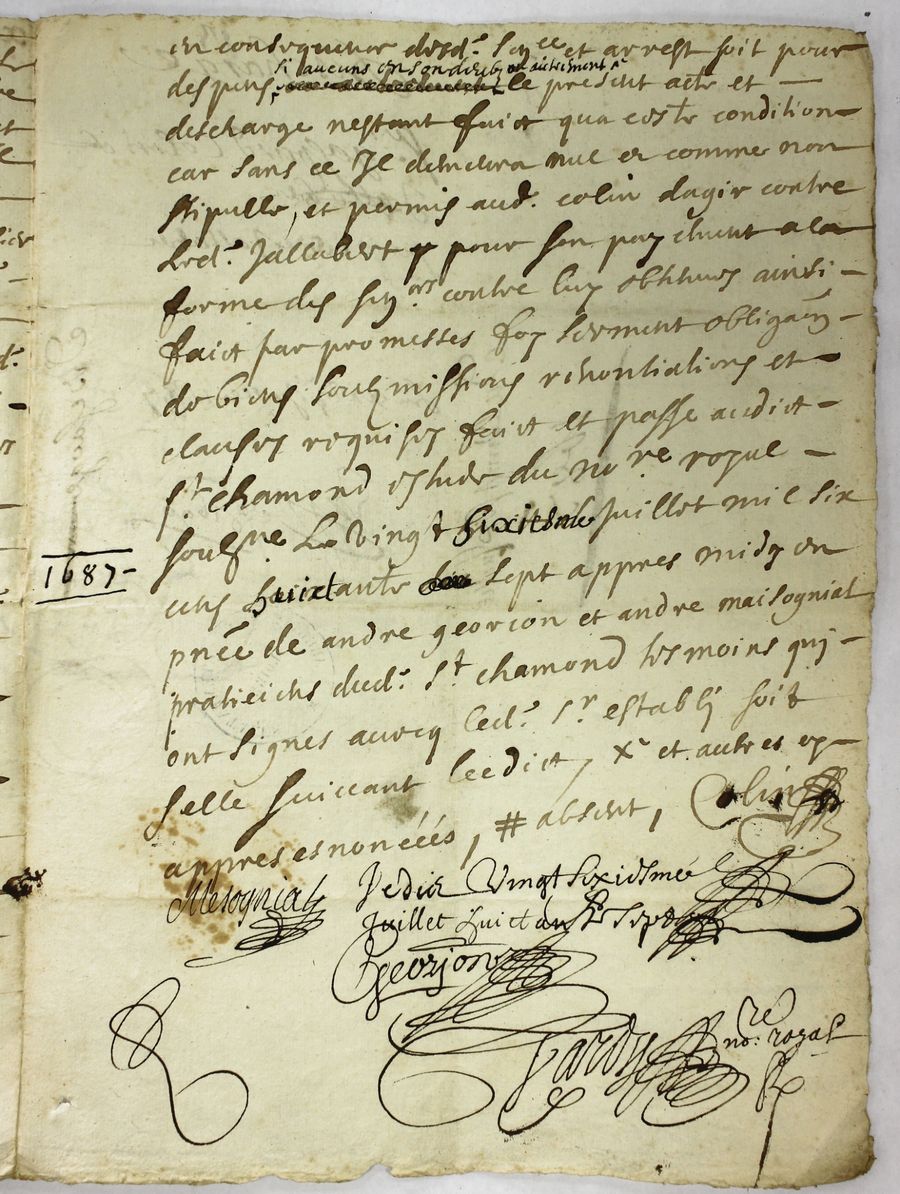 en consequence desd. sen.ce et arrest soit pour
si aucuns en sondeub ou autrement
despens le present acte et —
descharge nestant faict qua ceste condition
car sans ce Il demeura nul et comme non
stipulle, et permis aud. colin dagir contre
led. Jallabert pour son payement a la
forme des sen.ces contre luy obtenues ainsi —
faict par promesses foy serment obligaōn —
de biens soubzmissions renontiations et
clauses requises faict et passe audict —
s.t chamond estude du no.re royal —
soubz.ne Le Vingt sixiesme Juillet mil six
1687 —
cens huictante sept appres midy en
pn̄ce de andre georjon et andre maisognial
pratieiens dud. s.t chamond tesmoins qui —
ont signes avecq led. s.r establi soit
selle suivant leedict, X et autres ey
appres esnonéées, # absent, Colin
Mesognial Jedis Vingt sixiesme
Juillet huictante Sept
Georjon
Tardy no.re royal